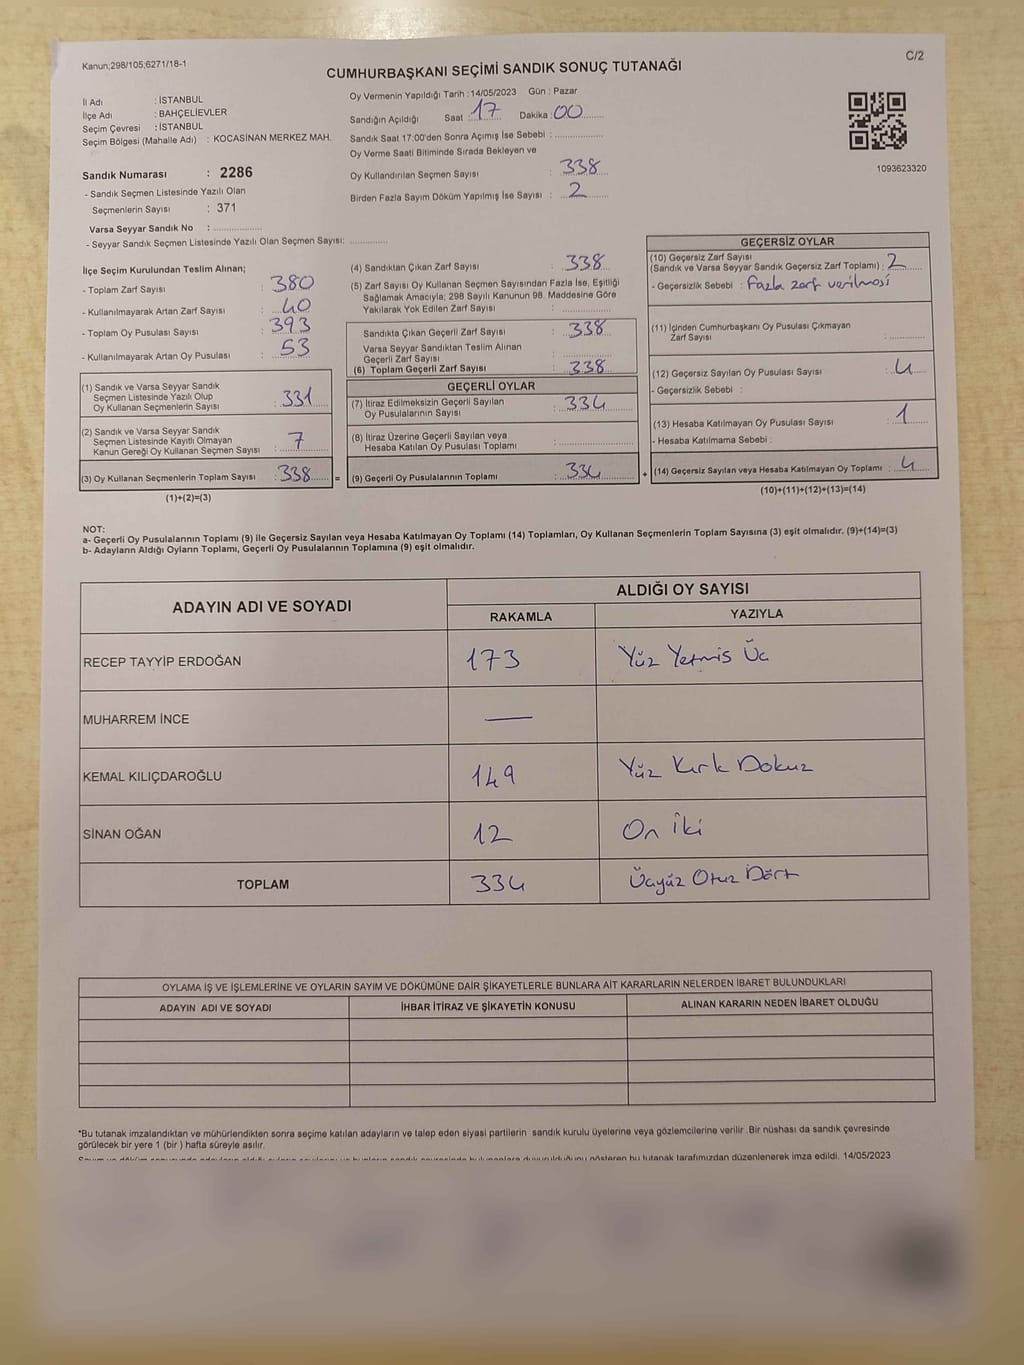 Kanun;298/105;6271/18-1
C/2
CUMHURBAŞKANI SEÇİMİ SANDIK SONUÇ TUTANAĞI
İl Adı : İSTANBUL
İlçe Adı : BAHÇELİEVLER
Seçim Çevresi : İSTANBUL
Seçim Bölgesi (Mahalle Adı) : KOCASİNAN MERKEZ MAH.
Sandık Numarası : 2286
- Sandık Seçmen Listesinde Yazılı Olan
Seçmenlerin Sayısı : 371
Varsa Seyyar Sandık No : ................
- Seyyar Sandık Seçmen Listesinde Yazılı Olan Seçmen Sayısı: ............
Oy Vermenin Yapıldığı Tarih : 14/05/2023 Gün : Pazar
Sandığın Açıldığı Saat : 17 Dakika : 00
Sandık Saat 17:00'den Sonra Açımış İse Sebebi : ...............
Oy Verme Saati Bitiminde Sırada Bekleyen ve
Oy Kullandırılan Seçmen Sayısı : 338
Birden Fazla Sayım Döküm Yapılmış İse Sayısı : 2
1093623320
İlçe Seçim Kurulundan Teslim Alınan;
- Toplam Zarf Sayısı : 380
- Kullanılmayarak Artan Zarf Sayısı : 40
- Toplam Oy Pusulası Sayısı : 393
- Kullanılmayarak Artan Oy Pusulası : 53
(1) Sandık ve Varsa Seyyar Sandık
Seçmen Listesinde Yazılı Olup
Oy Kullanan Seçmenlerin Sayısı : 331
(2) Sandık ve Varsa Seyyar Sandık
Seçmen Listesinde Kayıtlı Olmayan
Kanun Gereği Oy Kullanan Seçmen Sayısı : 7
(3) Oy Kullanan Seçmenlerin Toplam Sayısı : 338 =
(1)+(2)=(3)
(4) Sandıktan Çıkan Zarf Sayısı : 338
(5) Zarf Sayısı Oy Kullanan Seçmen Sayısından Fazla İse, Eşitliği
Sağlamak Amacıyla; 298 Sayılı Kanunun 98. Maddesine Göre
Yakılarak Yok Edilen Zarf Sayısı : ...............
Sandıkta Çıkan Geçerli Zarf Sayısı : 338
Varsa Seyyar Sandıktan Teslim Alınan
Geçerli Zarf Sayısı : ...............
(6) Toplam Geçerli Zarf Sayısı : 338
GEÇERLİ OYLAR
(7) İtiraz Edilmeksizin Geçerli Sayılan
Oy Pusulalarının Sayısı : 334
(8) İtiraz Üzerine Geçerli Sayılan veya
Hesaba Katılan Oy Pusulası Toplamı : ...............
(9) Geçerli Oy Pusulalarının Toplamı : 334 +
GEÇERSİZ OYLAR
(10) Geçersiz Zarf Sayısı
(Sandık ve Varsa Seyyar Sandık Geçersiz Zarf Toplamı) : 2
- Geçersizlik Sebebi : Fazla zarf verilmesi
(11) İçinden Cumhurbaşkanı Oy Pusulası Çıkmayan
Zarf Sayısı : ............
(12) Geçersiz Sayılan Oy Pusulası Sayısı : 4
- Geçersizlik Sebebi :
(13) Hesaba Katılmayan Oy Pusulası Sayısı : 1
- Hesaba Katılmama Sebebi :
(14) Geçersiz Sayılan veya Hesaba Katılmayan Oy Toplamı : 4
(10)+(11)+(12)+(13)=(14)
NOT:
a- Geçerli Oy Pusulalarının Toplamı (9) ile Geçersiz Sayılan veya Hesaba Katılmayan Oy Toplamı (14) Toplamları, Oy Kullanan Seçmenlerin Toplam Sayısına (3) eşit olmalıdır. (9)+(14)=(3)
b- Adayların Aldığı Oyların Toplamı, Geçerli Oy Pusulalarının Toplamına (9) eşit olmalıdır.
ADAYIN ADI VE SOYADI
ALDIĞI OY SAYISI
RAKAMLA YAZIYLA
RECEP TAYYİP ERDOĞAN 173 Yüz Yetmis Üc
MUHARREM İNCE —
KEMAL KILIÇDAROĞLU 149 Yüz Kırk Dokuz
SİNAN OĞAN 12 On İki
TOPLAM 334 Üçyüz Otuz Dört
OYLAMA İŞ VE İŞLEMLERİNE VE OYLARIN SAYIM VE DÖKÜMÜNE DAİR ŞİKAYETLERLE BUNLARA AİT KARARLARIN NELERDEN İBARET BULUNDUKLARI
ADAYIN ADI VE SOYADI İHBAR İTİRAZ VE ŞİKAYETİN KONUSU ALINAN KARARIN NEDEN İBARET OLDUĞU
*Bu tutanak imzalandıktan ve mühürlendikten sonra seçime katılan adayların ve talep eden siyasi partilerin sandık kurulu üyelerine veya gözlemcilerine verilir .Bir nüshası da sandık çevresinde
görülecek bir yere 1 (bir ) hafta süreyle asılır.
bu tutanak tarafımızdan düzenlenerek imza edildi. 14/05/2023